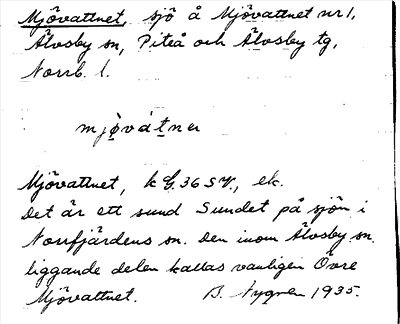 Mjövattnet, sjö å Mjövattnet nr 1,
Älvsby sn, Piteå och Älvsby tg,
Norrb. l.
mjövátner
Mjövattnet, k G. 36 SV., ek.
Det är ett sund Sundet på sjön i
Norrfjärdens sn. Den inom Älvsby sn.
liggande delen kallas vanligen Övre
Mjövattnet. B. Nygren 1935.